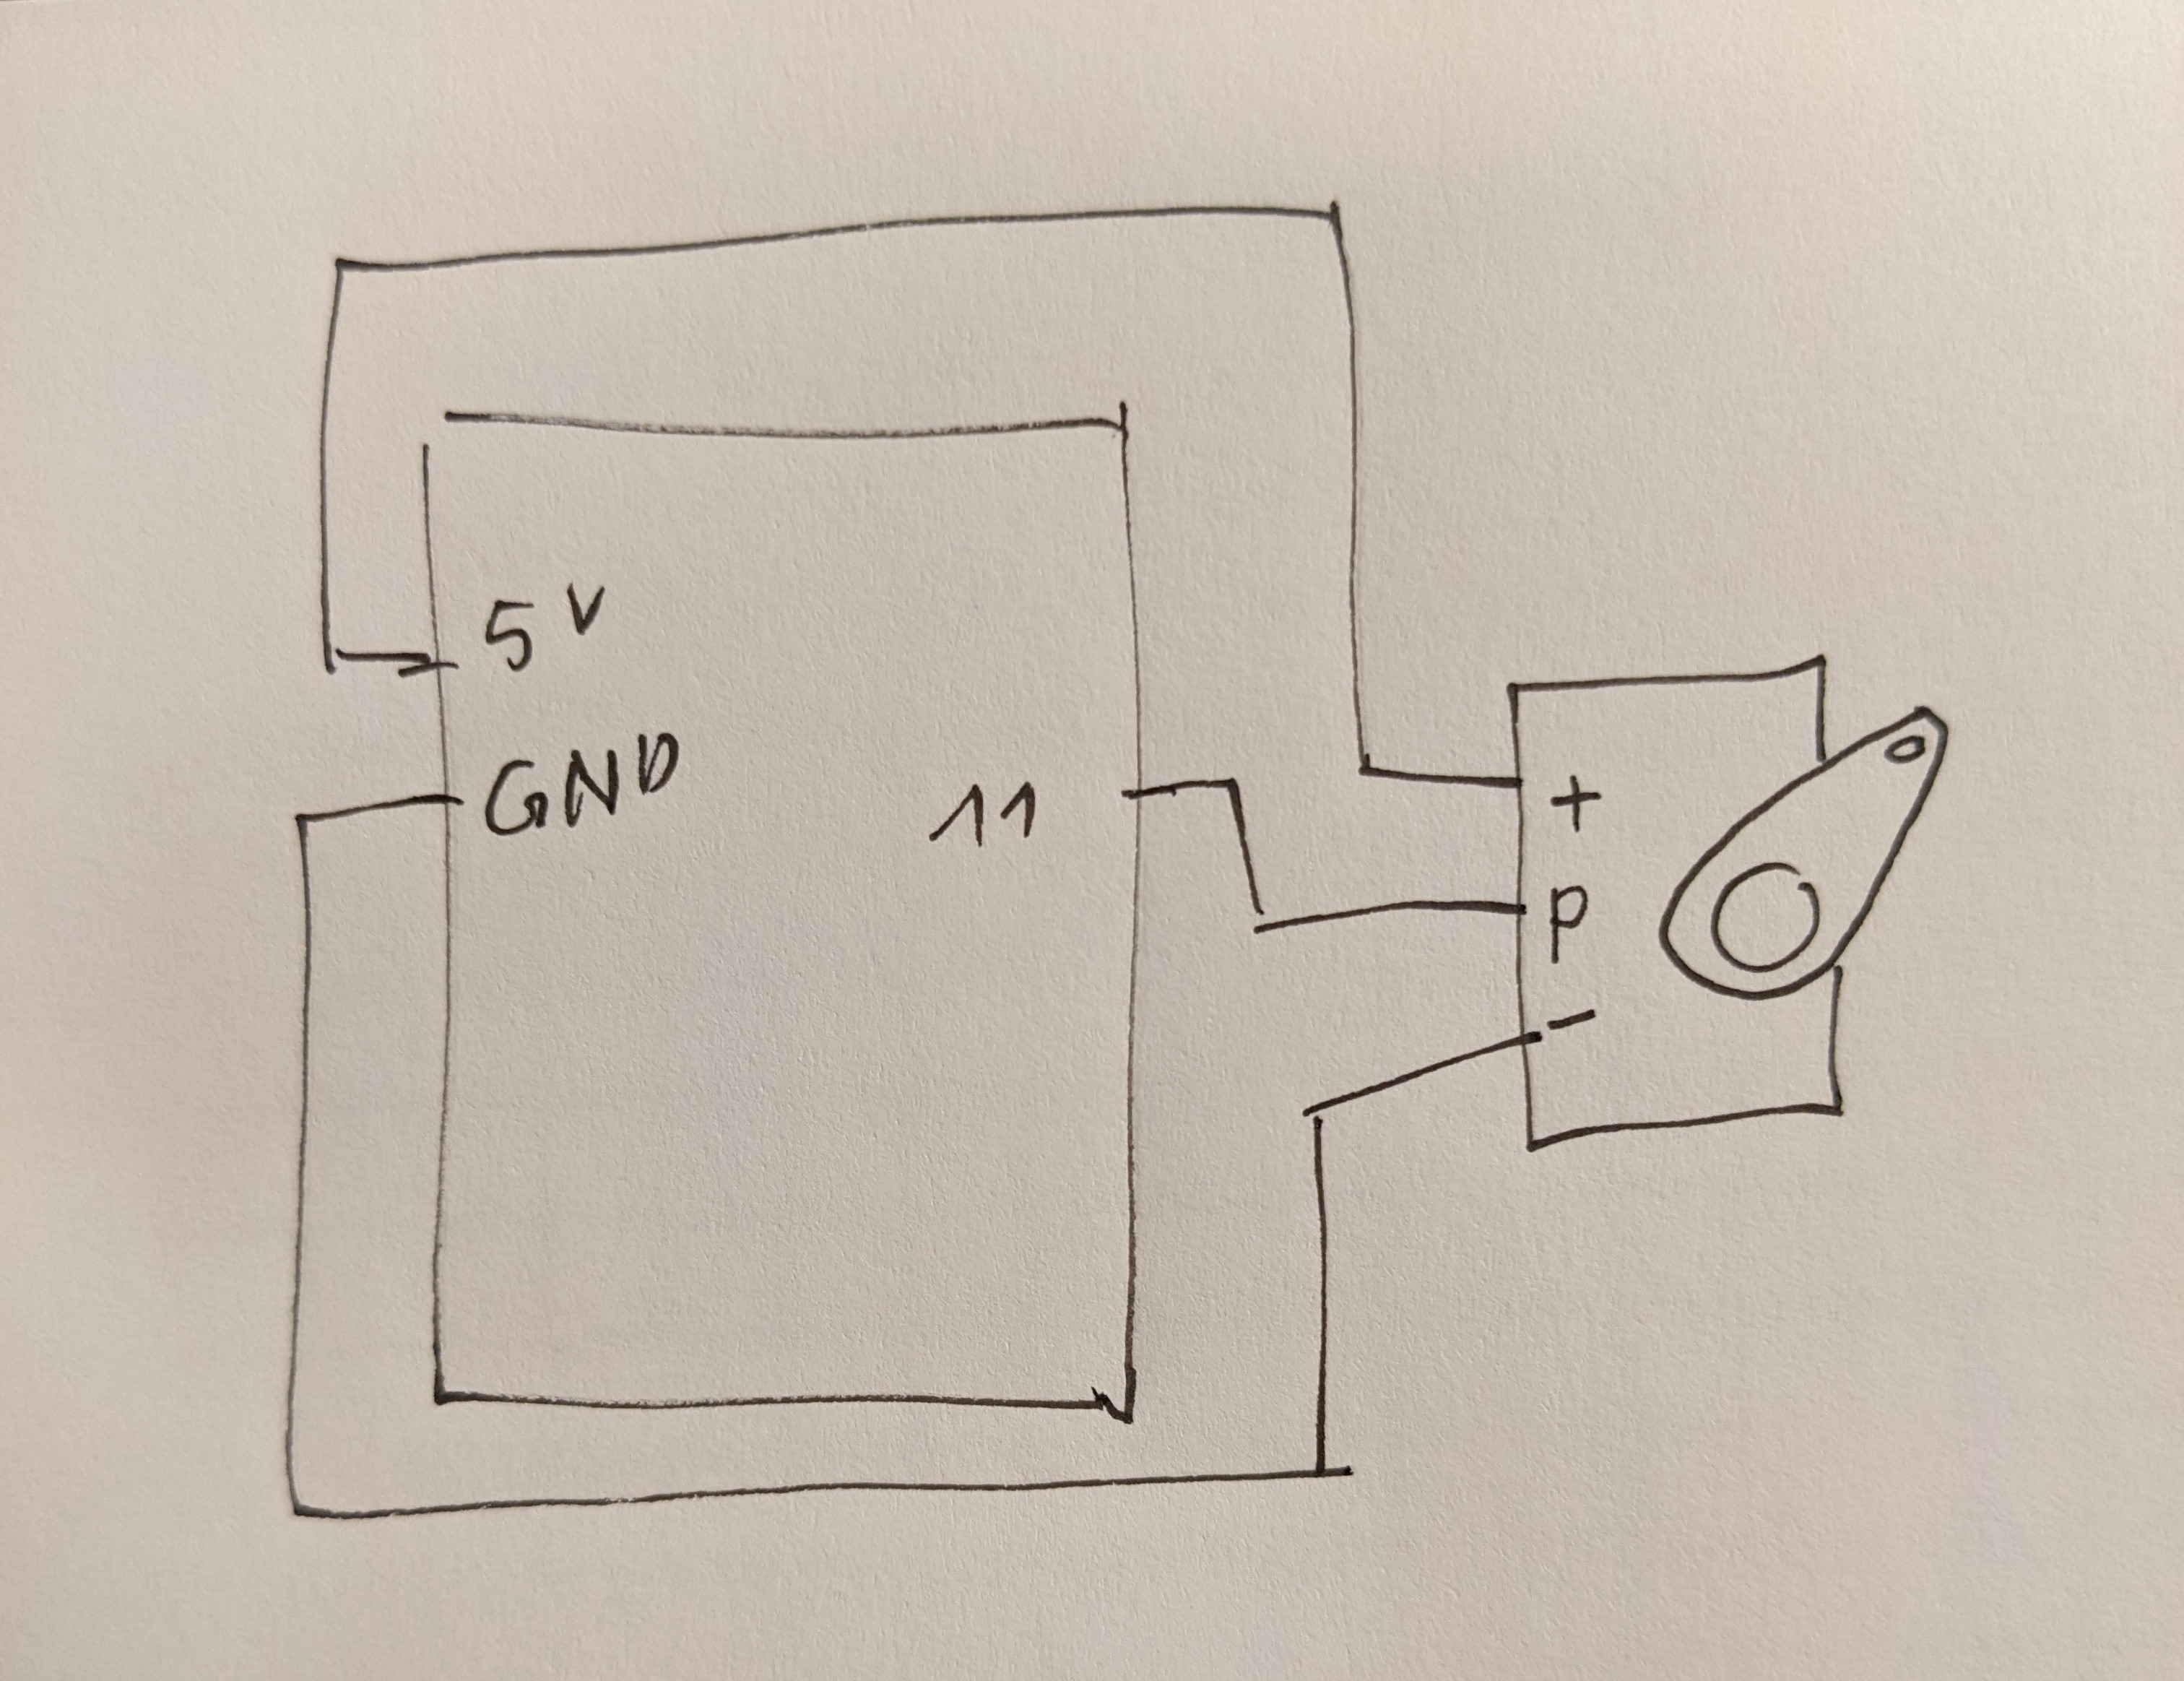 5V
GND
11
+
P
-